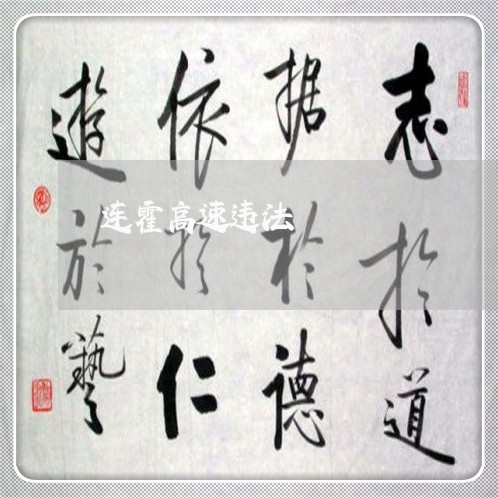 志於道
据於德
依於仁
遊於藝
连霍高速违法